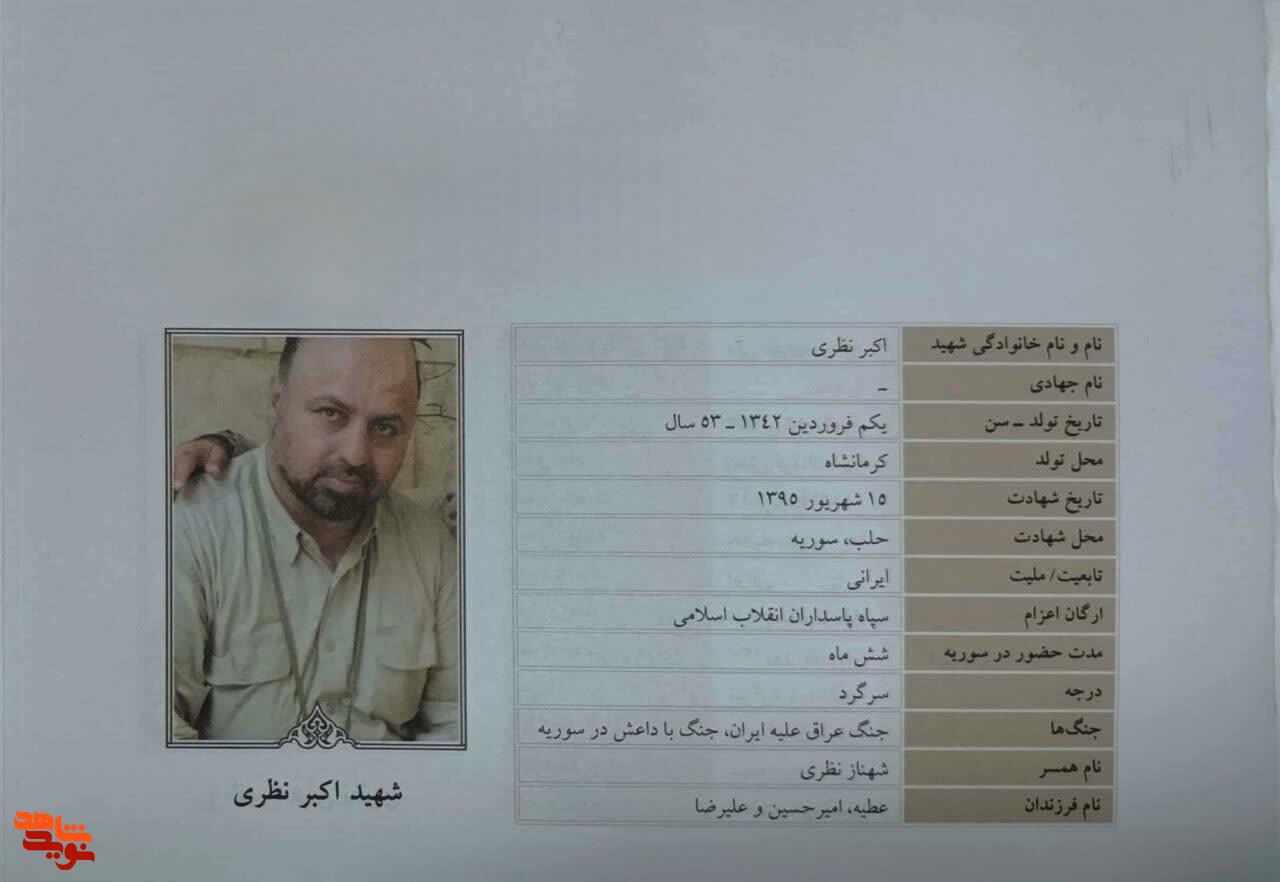 نام و نام خانوادگی شهید اکبر نظری
نام جهادی ـ
تاریخ تولد ـ سن یکم فروردین ١٣٤٢ ـ ٥٣ سال
محل تولد کرمانشاه
تاریخ شهادت ١٥ شهریور ١٣٩٥
محل شهادت حلب، سوریه
تابعیت/ ملیت ایرانی
ارگان اعزام سپاه پاسداران انقلاب اسلامی
مدت حضور در سوریه شش ماه
درجه سرگرد
جنگ‌ها جنگ عراق علیه ایران، جنگ با داعش در سوریه
نام همسر شهناز نظری
نام فرزندان عطیه، امیرحسین و علیرضا
شهید اکبر نظری
نوید شاهد